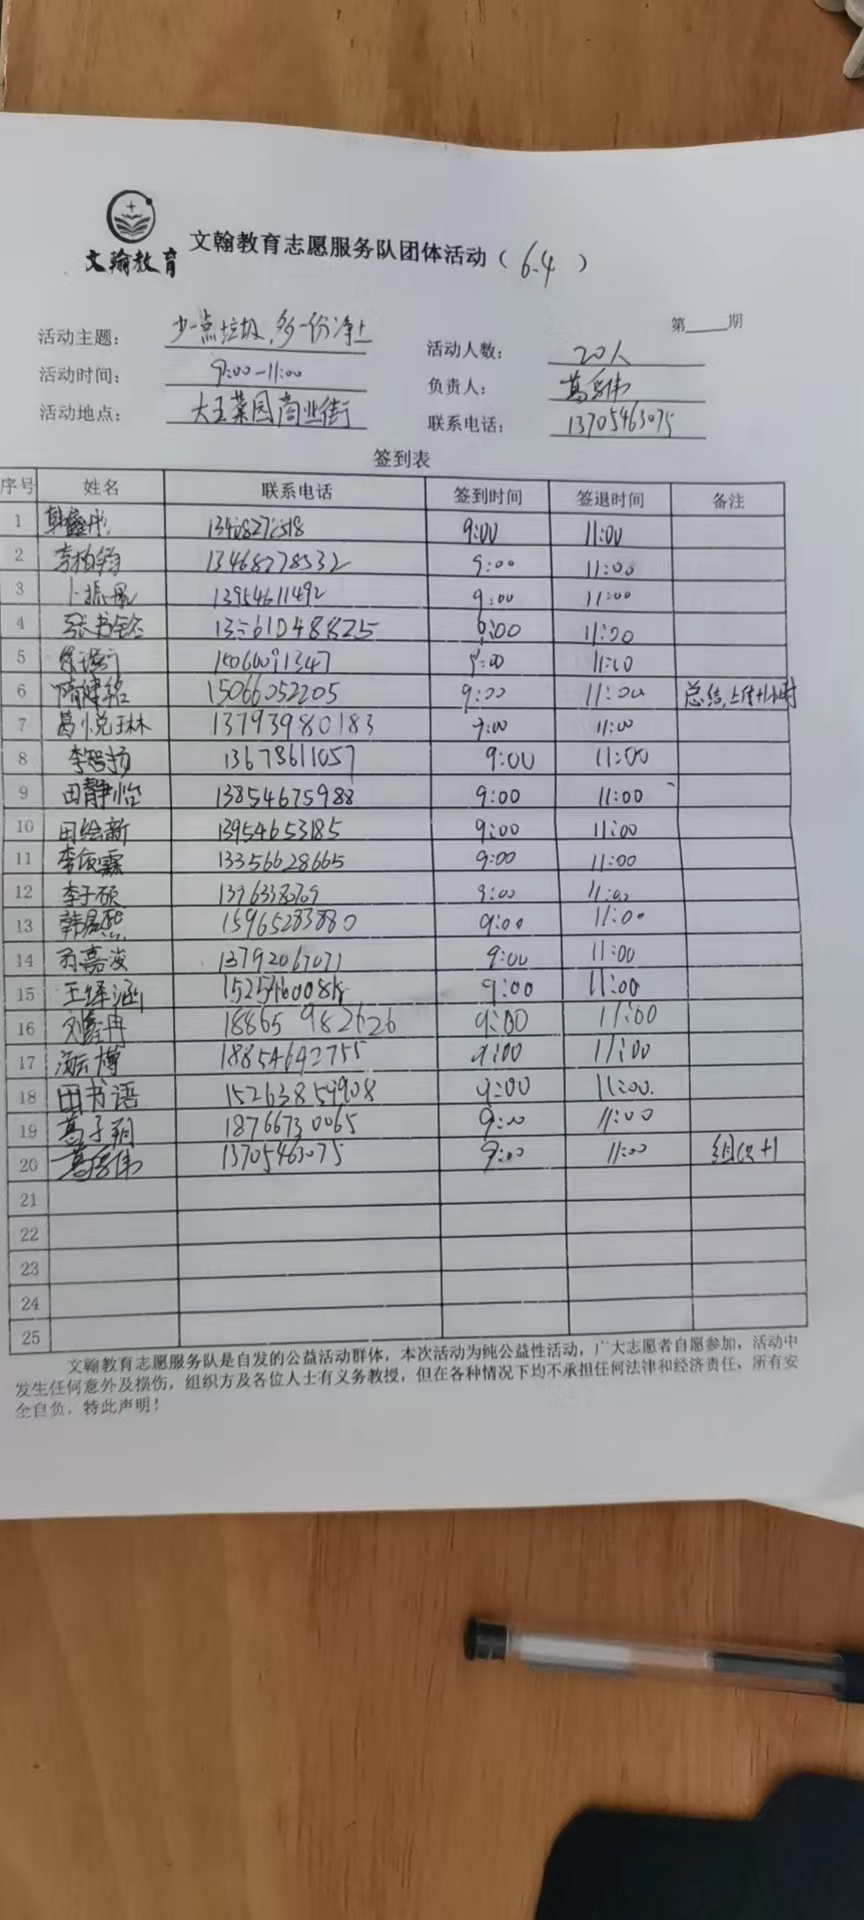 文翰教育
文翰教育志愿服务队团体活动（6.4）
第____期
活动主题： 少一点垃圾，多一份净土 活动人数： 20人
活动时间： 9:00-11:00 负责人：
活动地点： 大王菜园商业街 联系电话： 13705463075
签到表
序号 姓名 联系电话 签到时间 签退时间 备注
1 韩鑫彤 9:00 11:00
2 李柏钧 13468278532 9:00 11:00
3 13954611492 9:00 11:00
4 6:00 11:00
5 9:00 11:00
6 隋健铭 15066052205 9:00 11:00 总结,上传+1小时
7 葛悦琳 13793980183 9:00 11:00
8 李智扬 13678611057 9:00 11:00
9 田静怡 13854675988 9:00 11:00
10 田绘新 13954653185 9:00 11:00
11 13356628665 9:00 11:00
12 李子硕 9:00 11:00
13 15965283880 9:00 11:00
14 13792067071 9:00 11:00
15 9:00 11:00
16 18865982626 9:00 11:00
17 18854692755 9:00 11:00
18 田书语 15263859908 9:00 11:00.
19 葛子翔 18766730065 9:00 11:00
20 13705463075 9:00 11:00 组织+1
21
22
23
24
25
文翰教育志愿服务队是自发的公益活动群体，本次活动为纯公益性活动，广大志愿者自愿参加，活动中
发生任何意外及损伤，组织方及各位人士有义务教授，但在各种情况下均不承担任何法律和经济责任，所有安
全自负，特此声明！